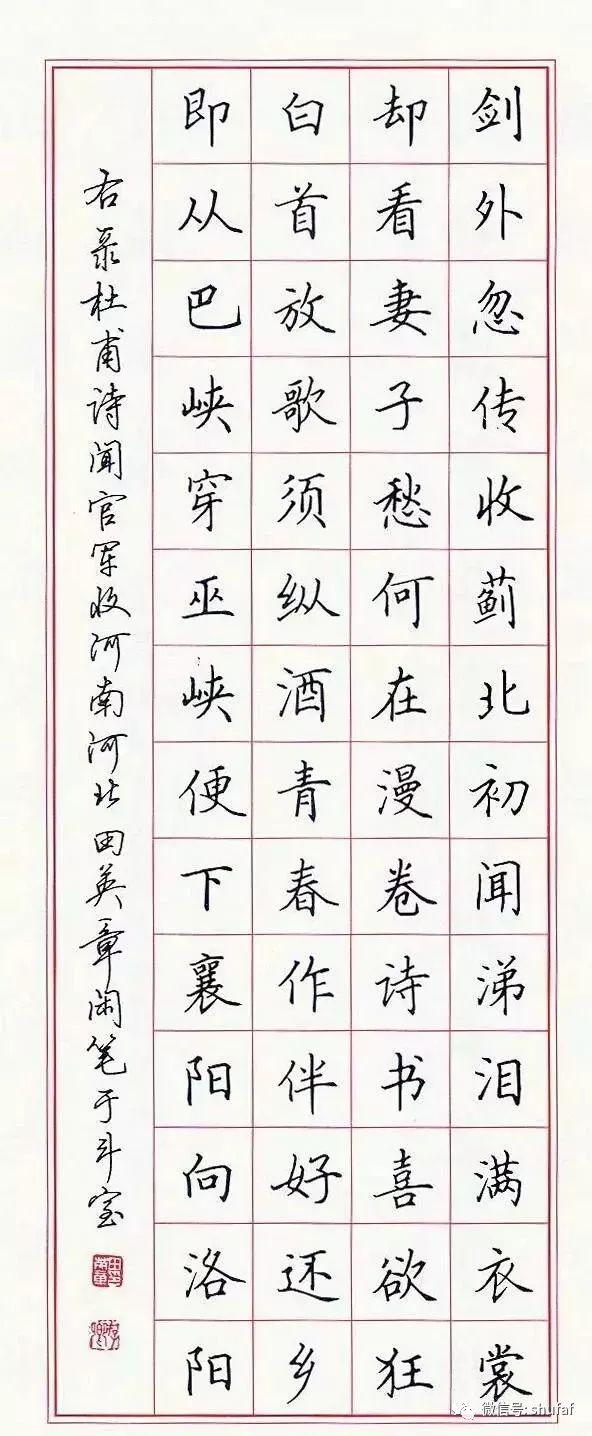 剑外忽传收蓟北初闻涕泪满衣裳
却看妻子愁何在漫卷诗书喜欲狂
白首放歌须纵酒青春作伴好还乡
即从巴峡穿巫峡便下襄阳向洛阳
右录杜甫诗闻官军收河南河北田英章闲笔于斗室
微信号: shufaf